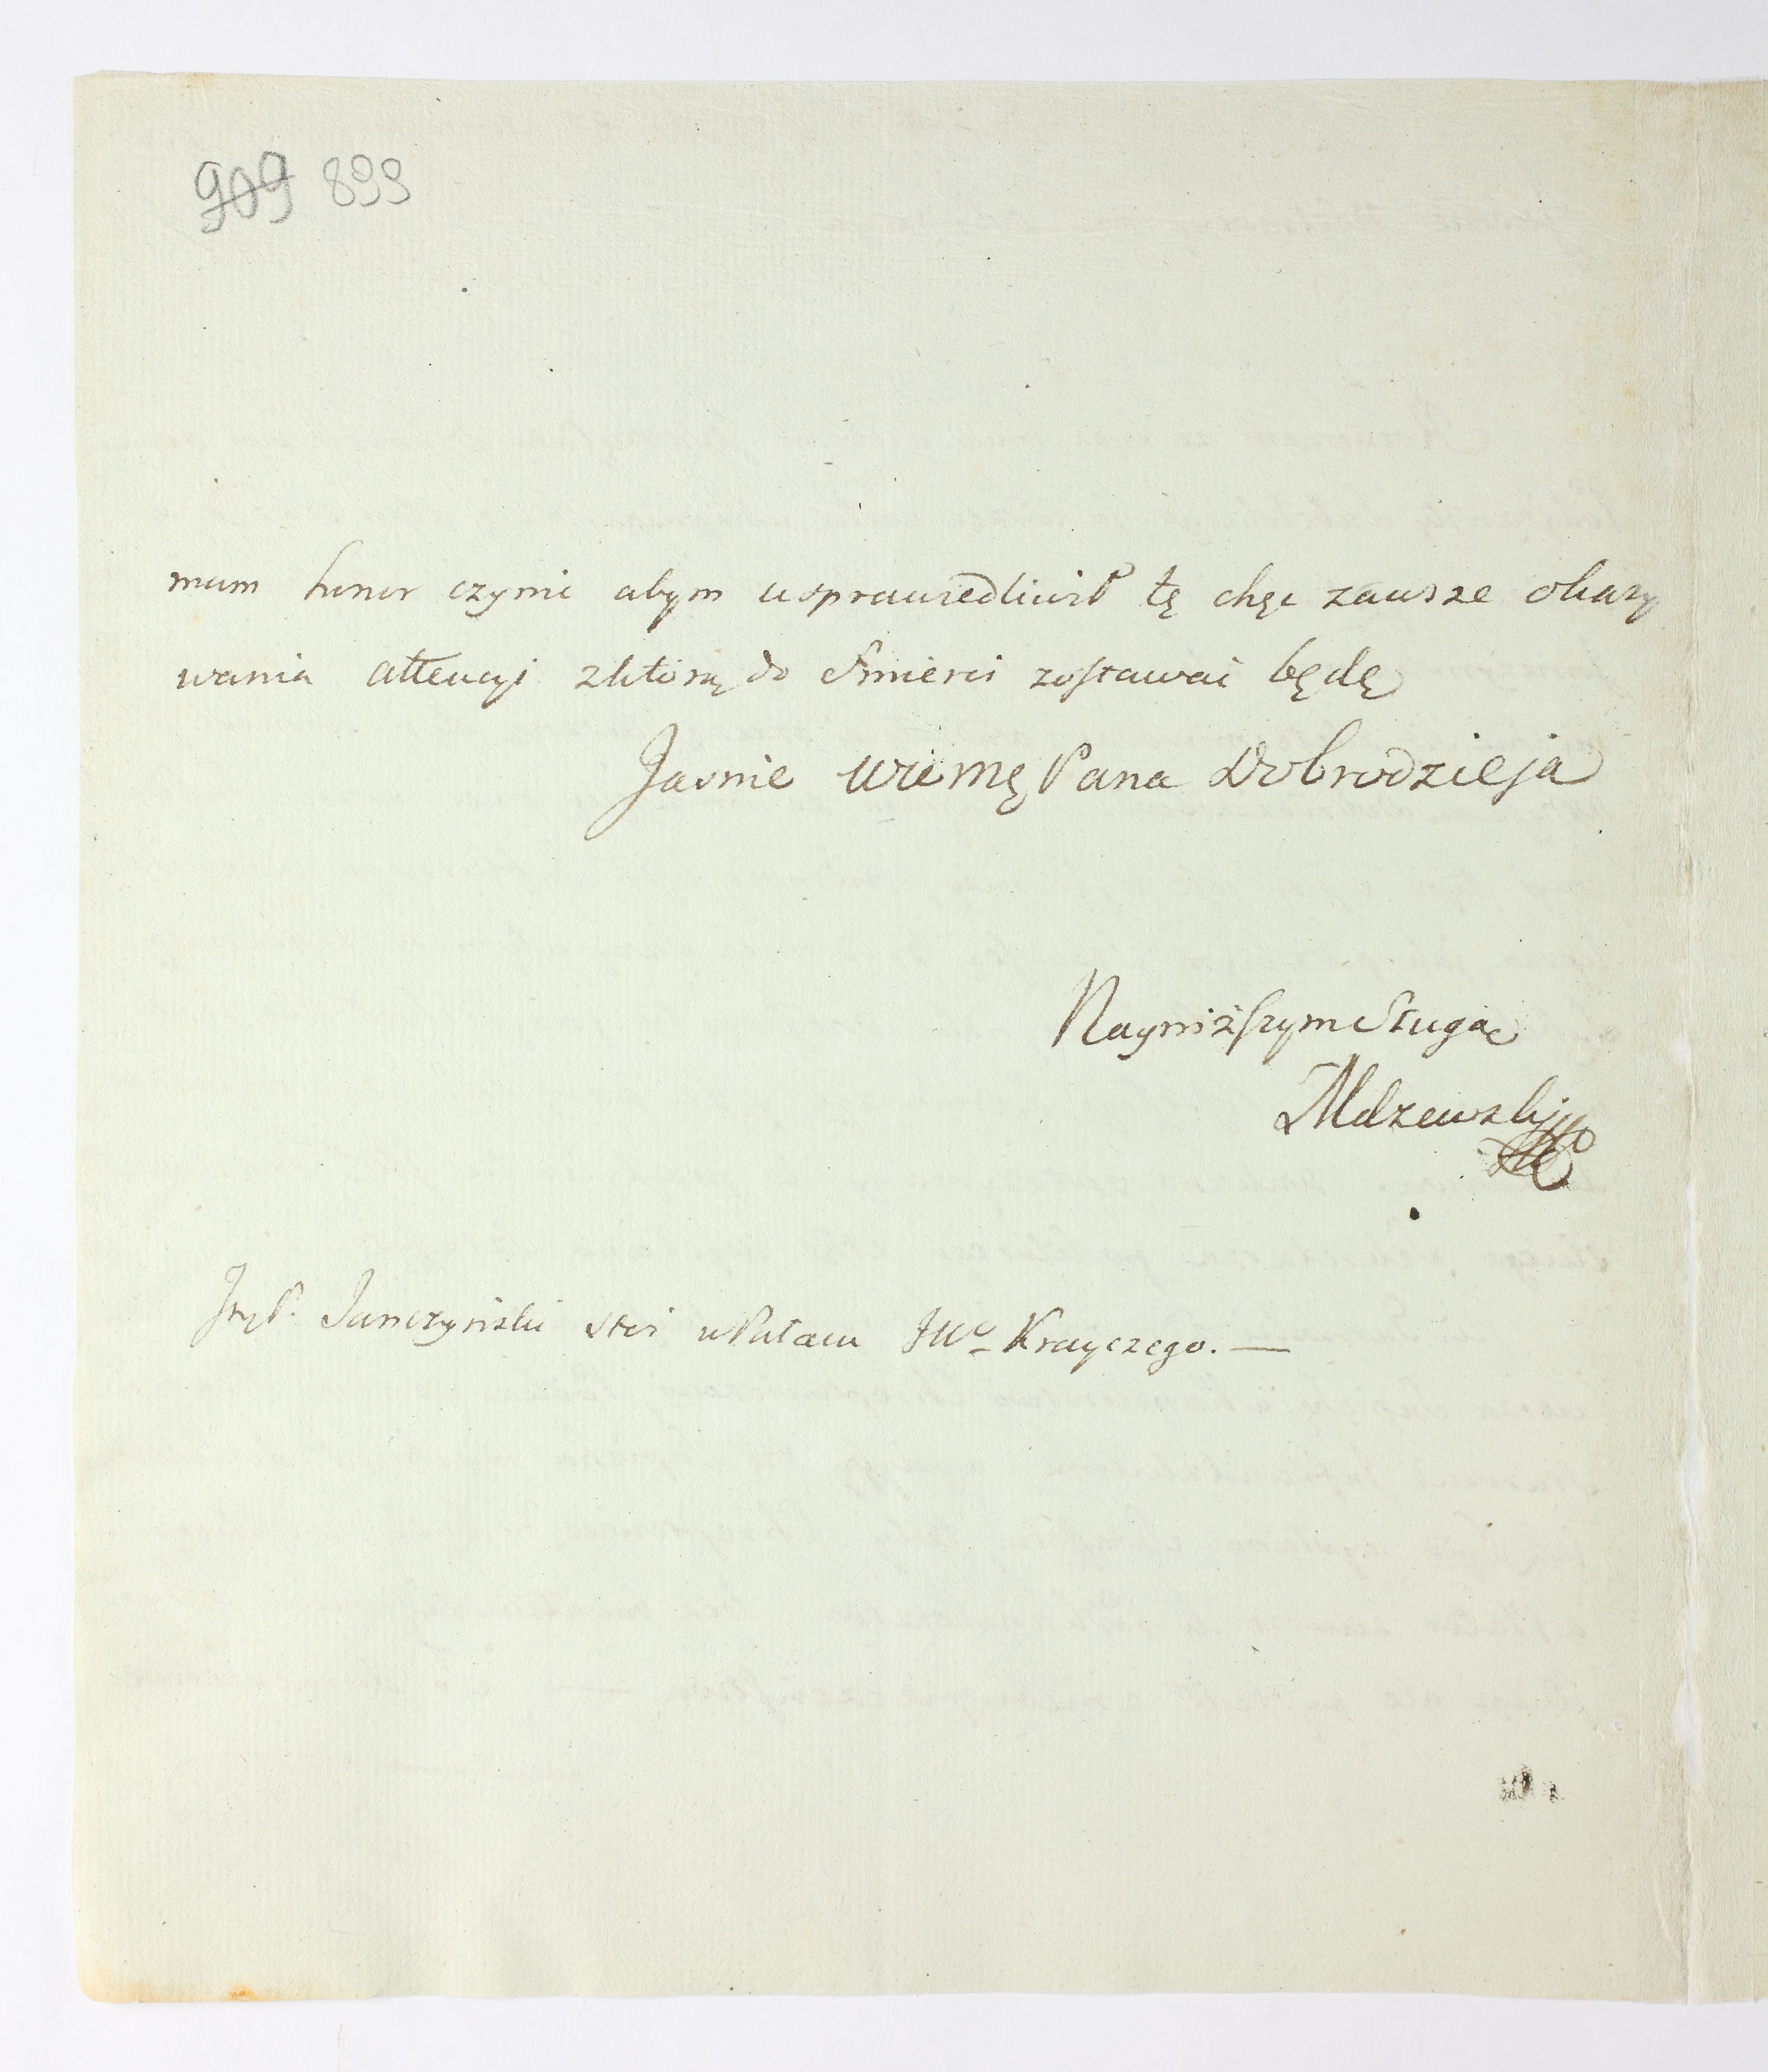 909 899
mam honor czynic abym usprawiedliwił tę chęc zawsze okazy
wania attencyi zktorą do smierci zostawać będę
Jasnie Wie Mę Pana Dobrodzieja
Nayniższym Sługą
Mdzewski
JmćP. Janczyński stoi wPałacu JWo Krayczego. —